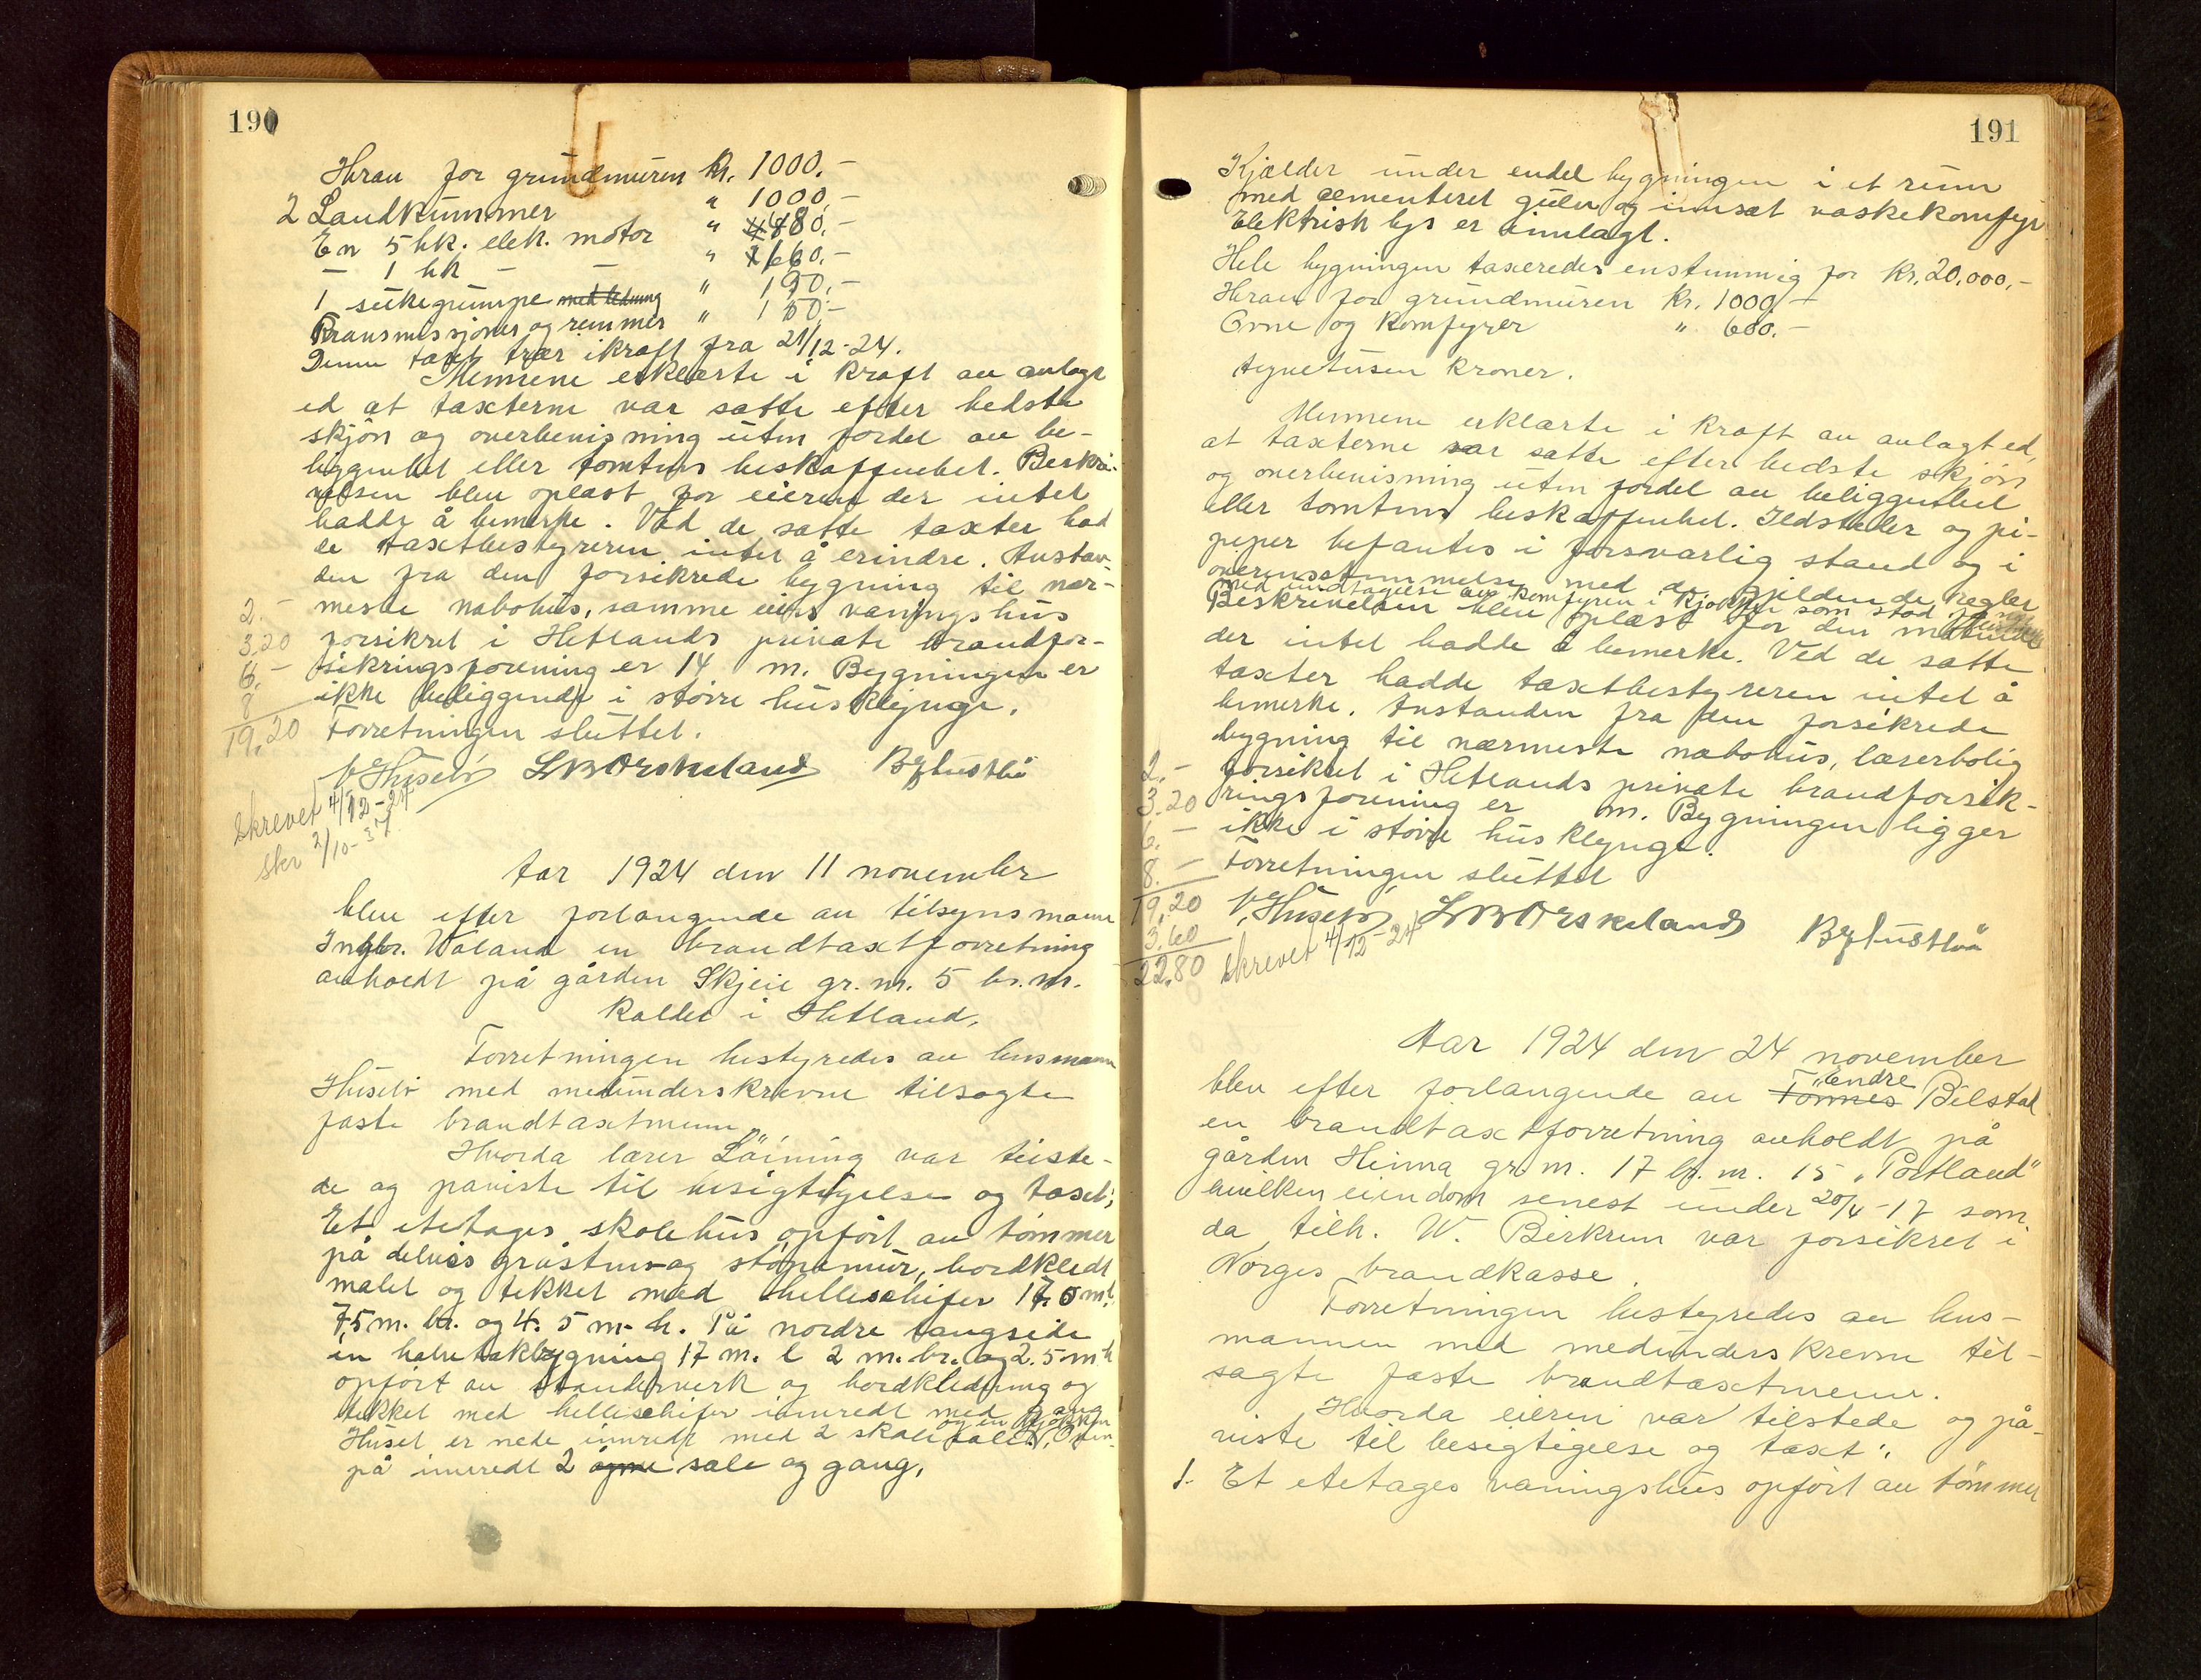 190
Herav for grundmuren kr. 1000.-
2 Landkummer " 1000.-
En 5 hk. elek. motor " 480.-
- 1 hk - - " 660.-
1 sukepumpe med ledning " 190.-
Transmissjoner og remmer " 150.-
Denne taxt trær ikraft fra 21/12-24.
Mennene erklærte i kraft av avlagt
ed at taxterne var satte efter bedste
skjön og overbevisning uten fordel av be-
liggenhet eller tomtens beskaffenhet. Beskri-
velsen blev oplæst for eieren der intet
hadde å bemerke. Ved de satte taxter had
de taxtbestyreren intet å erindre. Avstan-
den fra den forsikrede bygning til nær-
meste nabohus, samme eiers vaningshus
forsikret i Hetlands private brandfor-
sikringsforening er 14 m. Bygningen er
ikke beliggende i större husklynge.
Forretningen sluttet.
2.-
3.20
6.-
8
19.20
V Husebö L M Orskeland B Tustbö
Skrevet 4/12-24
Skr 2/10-37
Aar 1924 den 11 november
blev efter forlangende av tilsynsmann
Ingbr. Våland en brandtaxtforretning
avholdt på gården Skjeie gr. nr. 5 br. nr.
kaldet i Hetland.
Forretningen bestyredes av lensmann
Husebö med medunderskrevne tilsagte
faste brandtaxtmenn.
Hvorda lærer Löining var tilste-
de og paviste til besigtigelse og taxt;
Et etetages skolehus opfört av tömmer
på delvis gråsten og stöpemur, bordkledt
malet og tekket med helleskifer 17.0 m l.
7,5 m. br. og 4.5 m. h. På nordre langside
en halvtakbygning 17 m. l 2 m. br. og 2.5 m h
opfört av standerverk og bordkledning og
tekket med helleskifer innredt med gang
og en kjökken
Huset er nede innredt med 2 skolesaler. Oven-
på innredt 2 sale og gang.
191
Kjælder under endel bygningen i et rum
med cementeret gulv og innsat vaskekomfyr
Elektrisk lys er innlagt.
Hele bygningen taxeredes enstemmig for kr. 20,000.-
Herav for grundmuren kr. 1000.-
Ovne og komfyrer " 600.-
tyvetusen kroner.
Mennene erklærte i kraft av avlagt ed,
at taxterne var satte efter bedste skjön
og overbevisning uten fordel av beliggenhet
eller tomtens beskaffenhet. Ildsteder og pi-
piper befantes i forsvarlig stand og i
overensstemmelse med de gjeldende regler
med undtagelse av komfyren i kjökken som stod
Beskrivelsen blev oplæst for den mötende
der intet hadde å bemerke. Ved de satte
taxter hadde taxtbestyreren intet å
bemerke. Avstanden fra den forsikrede
bygning til nærmeste nabohus, lærerbolig
forsikret i Hetlands private brandforsik-
ringsforening er m. Bygningen ligger
ikke i större husklynge.
Forretningen sluttet
2.-
3.20
6.-
8.-
19.20
3.60
22.80
V. Husebö L M Orskeland B Tustbö
Skrevet 4/12-24
Aar 1924 den 24 november
Endre
blev efter forlangende av Tönnes Bilstad
en brandtaxtforretning avholdt på
gården Hinna gr. nr. 17 br. nr. 15 "Portland"
hvilken eiendom senest under 20/4-17 som
da tilh. W. Birkrem var forsikret i
Norges brandkasse.
Forretningen bestyredes av lens-
mannen med medunderskrevne til-
sagte faste brandtaxtmenn.
Hvorda eieren var tilstede og på-
viste til besigtigelse og taxt:
1. Et etetages vaningshus opfört av tömmer